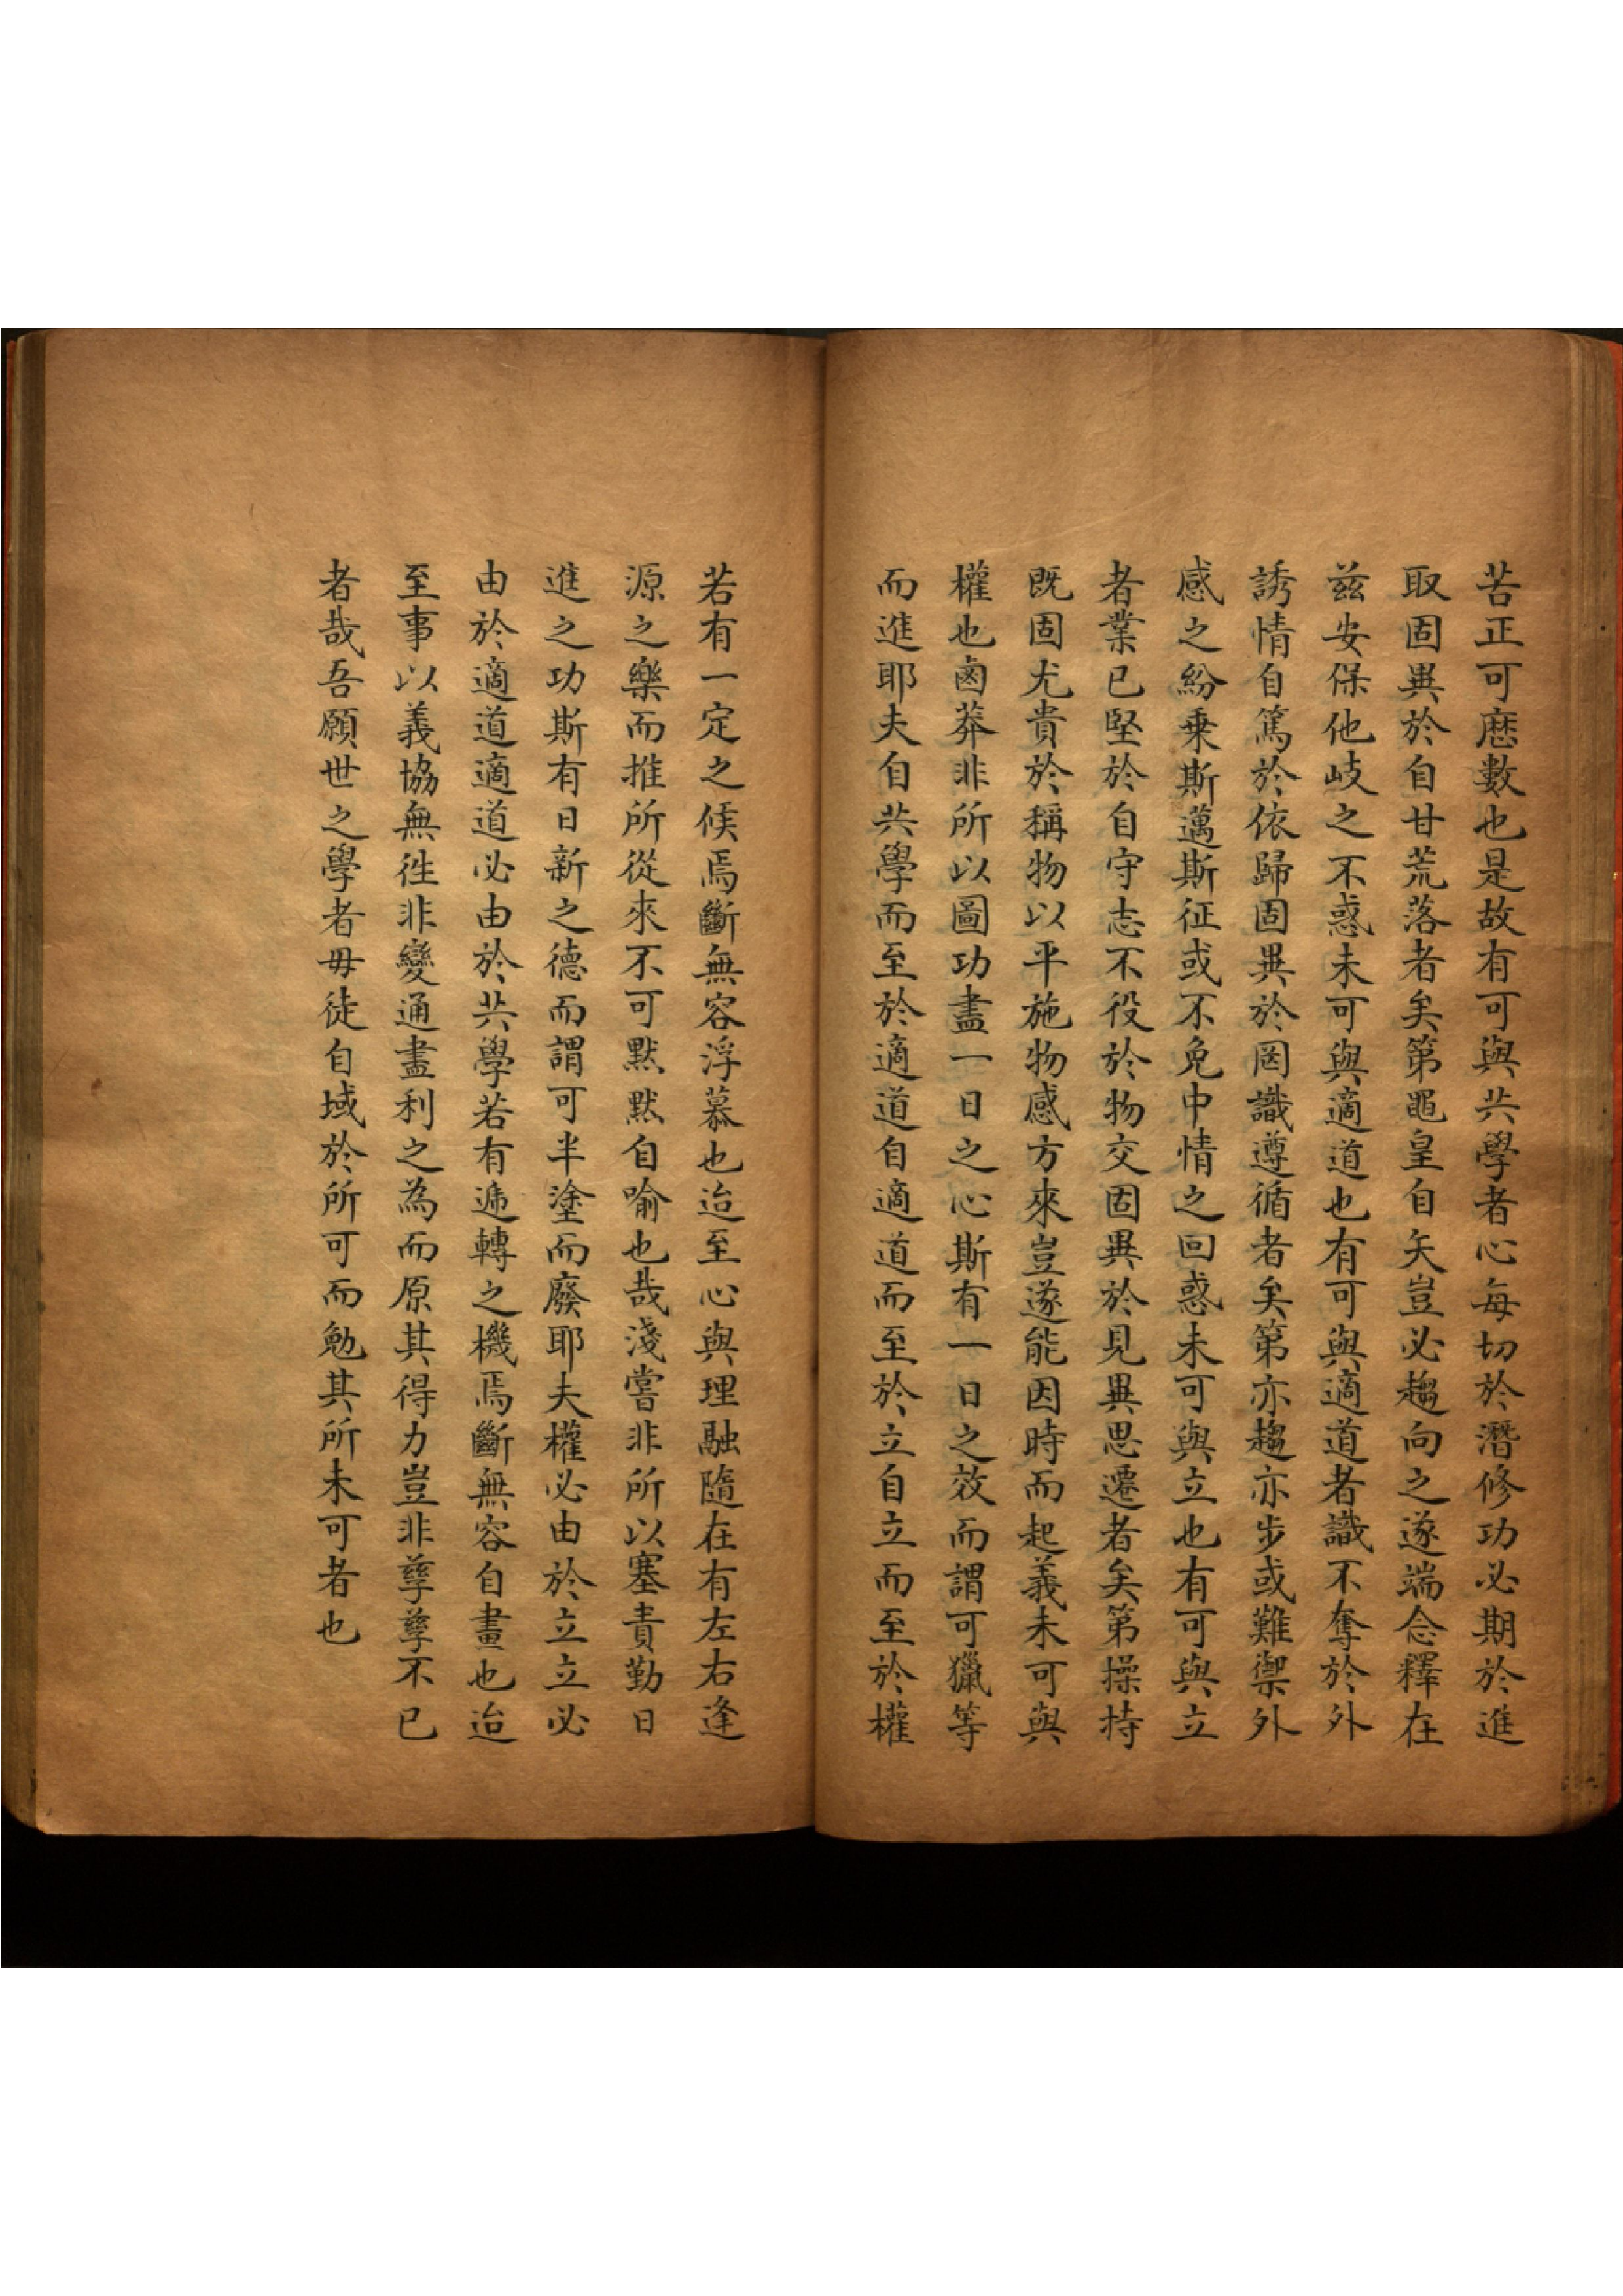 苦正可歷數也是故有可與共學者心每切於潛修功必期於進
取固異於自甘荒落者矣第黽皇自矢豈必趨向之遂端念釋在
茲安保他岐之不惑未可與適道也有可與適道者識不奪於外
誘情自篤於依歸固異於罔識遵循者矣第亦趨亦步或難禦外
感之紛乗斯邁斯征或不免中情之回惑未可與立也有可與立
者業已堅於自守志不役於物交固異於見異思遷者矣第操持
既固尤貴於稱物以平施物感方來豈遂能因時而起義未可與
權也鹵莽非所以圖功盡一日之心斯有一日之效而謂可獵等
而進耶夫自共學而至於適道自適道而至於立自立而至於權
若有一定之候焉斷無容浮慕也迨至心與理融隨在有左右逢
源之樂而推所從來不可默默自喻也哉淺嘗非所以塞責勤日
進之功斯有日新之德而謂可半塗而廢耶夫權必由於立立必
由於適道適道必由於共學若有遞轉之機焉斷無容自畫也迨
至事以義協無往非變通盡利之為而原其得力豈非孳孳不已
者哉吾願世之學者毋徒自域於所可而勉其所未可者也